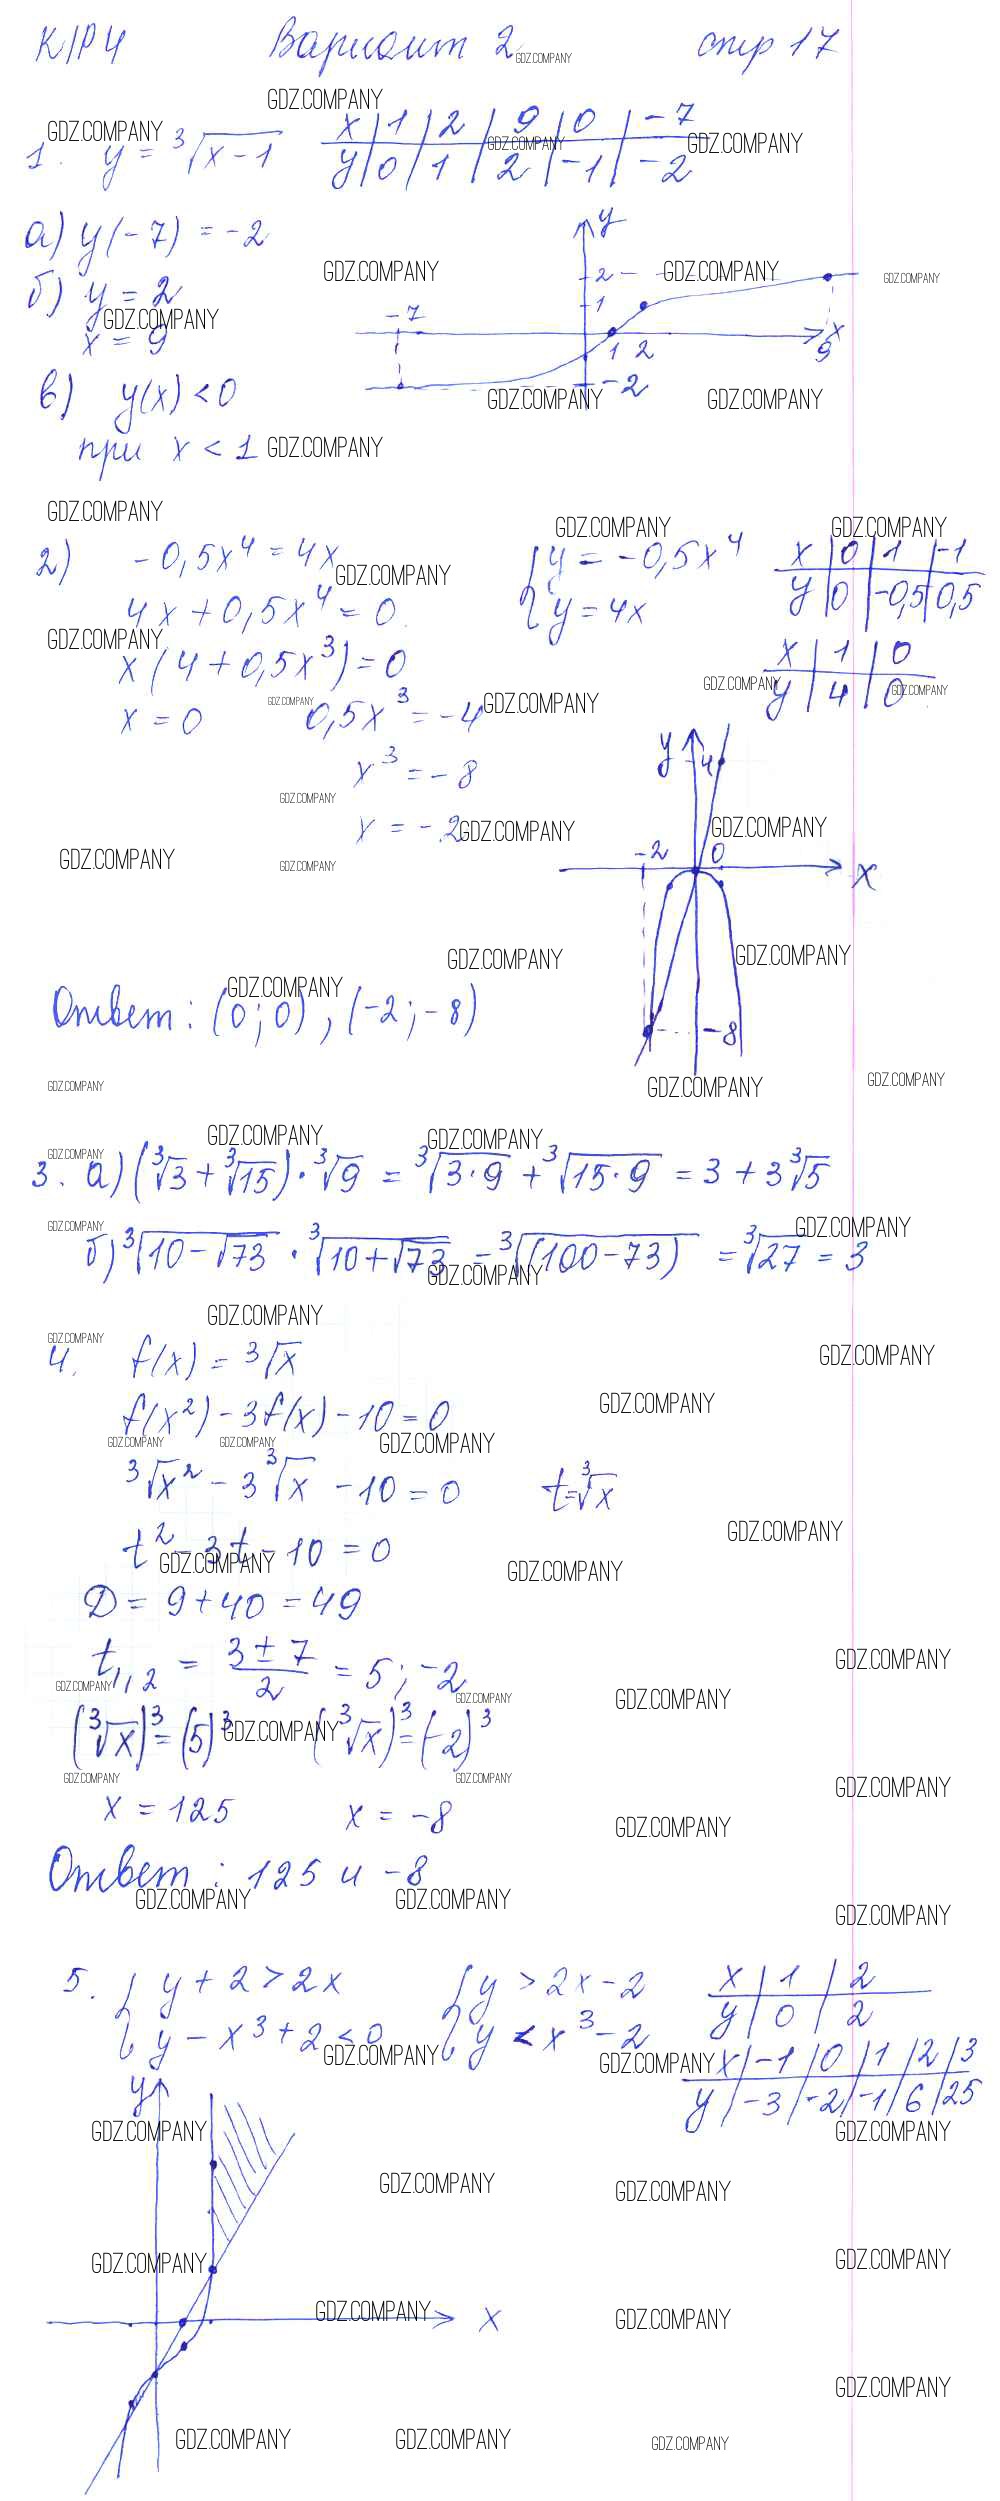 К/Р 4 Вариант 2 стр 17
1. y = ∛(x − 1)
x | 1 | 2 | 9 | 0 | −7
y | 0 | 1 | 2 | −1 | −2
а) y(−7) = −2
б) y = 2
x = 9
в) y(x) < 0
при x < 1
y
2
1
−7
1 2 9 x
−2
2) −0,5x⁴ = 4x
4x + 0,5x⁴ = 0
x(4 + 0,5x³) = 0
x = 0 0,5x³ = −4
x³ = −8
x = −2
{ y = −0,5x⁴
{ y = 4x
x | 0 | 1 | −1
y | 0 | −0,5 | 0,5
x | 1 | 0
y | 4 | 0
y 4
−2 0 x
−8
Ответ: (0; 0), (−2; −8)
3. а) (∛3 + ∛15) · ∛9 = ∛(3·9) + ∛(15·9) = 3 + 3∛5
б) ∛(10 − √73) · ∛(10 + √73) = ∛((100 − 73) = ∛27 = 3
4. f(x) = ∛x
f(x²) − 3f(x) − 10 = 0
∛x² − 3∛x − 10 = 0 t = ∛x
t² − 3t − 10 = 0
Д = 9 + 40 = 49
t₁,₂ = (3 ± 7)/2 = 5; −2
(∛x)³ = (5)³ (∛x)³ = (−2)³
x = 125 x = −8
Ответ: 125 и −8
5. { y + 2 > 2x { y > 2x − 2
{ y − x³ + 2 < 0 { y < x³ − 2
x | 1 | 2
y | 0 | 2
x | −1 | 0 | 1 | 2 | 3
y | −3 | −2 | −1 | 6 | 25
y
x
GDZ.COMPANY